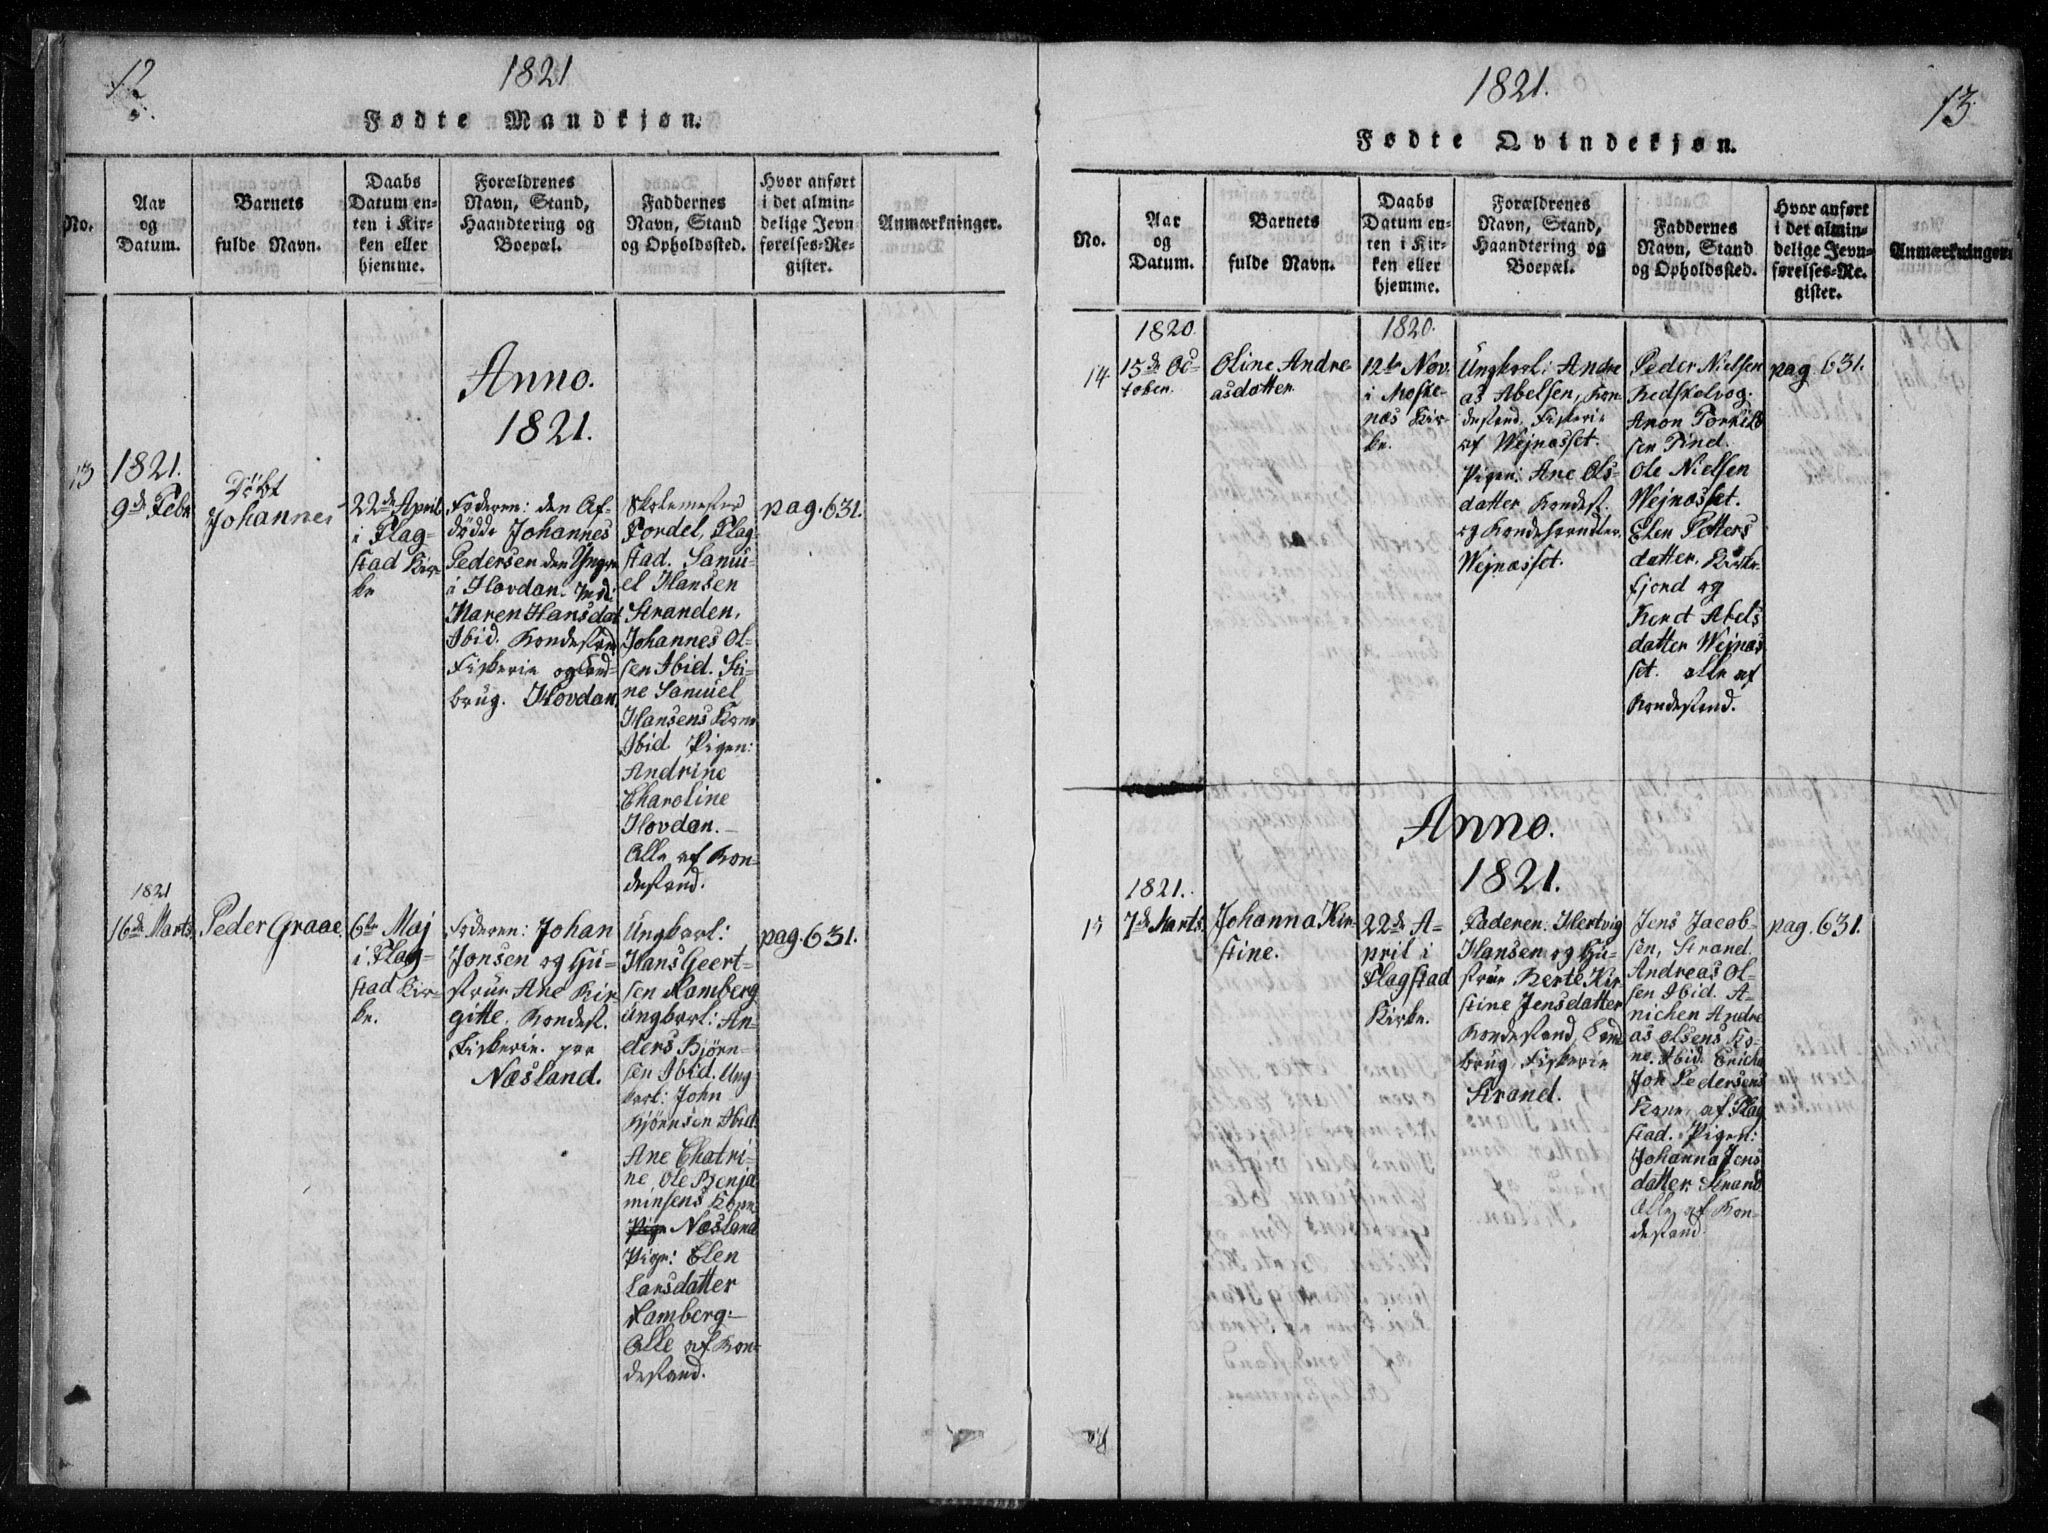 12
1821
Fødte Mandkjøn.
No.
Aar
og
Datum.
Barnets
fulde Navn.
Daabs
Datum en-
ten i Kir-
ken eller
hjemme.
Forældrenes
Navn, Stand,
Haandtering og
Boepæl.
Faddernes
Navn, Stand
og Opholdssted.
Hvor anført
i det almin-
delige Jevn
førelses-Re-
gister.
Anmærkninger.
Anno.
1821.
13
1821.
9de Febr
Døbt
Johannes
22de April
i Flag-
stad Kir-
ke
Faderen: den Af-
dödde Johannes
Pedersen den Yngre
i Hovdan.
Maren Hansdat
Ibid. Bondestand
Fiskerie og Land-
brug. Hovdan.
Skolemester
Fordel, Flag-
stad. Samu-
el Hansen
Stranden,
Johannes Ol-
sen Ibid. Sti-
ne Samuel
Hansens Kone
Ibid. Pigen:
Andrine
Charoline
Hovdan.-
Alle af Bon-
destand.
pag. 631.
1821
16de Marts
Peder Graae
6te Maj
i Flag-
stad Kir-
ke.
Faderen: Johan
Jonsen og Hu-
strue Ane Bir-
gitte. Bondest.
Fiskerie. paa
Næsland.
Ungkarl:
Hans Geert-
sen Ramberg
Ungkarl: An-
ders Bjørn-
sen Ibid. Ung
karl: John
Bjørnsen Ibid.
Ane Chatri-
ne, Ole Benja
minsens Kone
Pige Næsland
Pige: Elen
Larsdatter
Ramberg.-
Alle af Bon-
destand.
pag. 631.
1821.
13
Fødte Qvindekjøn.
No.
Aar
og
Datum.
Barnets
fulde Navn.
Daabs
Datum en-
ten i Kir-
ken eller
hjemme.
Forældrenes
Navn, Stand,
Haandtering og
Boepæl.
Faddernes
Navn, Stand
og Opholdssted.
Hvor anført
i det almin-
delige Jevn-
førelses-Re-
gister.
Anmærkninger.
14
1820.
15de Oc-
tober.
Oline Andre-
asdatter
1820.
12te Nov.
i Moske-
næs Kir-
ke.
Ungkarl: Andre
as Abelsen, Bon-
destand, Fiskerie
af Wejnæsset.
Pigen: Ane Ols-
datter Bondest.
Wejnæsset.
Peder Nielsen
Anon Torkild
sen Tind.
Ole Nielsen
Wejnæsset.
Elen Petters
datter,
fjord og
Berit Abels
datter Wejnæs
set. alle af
Bondestand.
pag. 631.
Anno.
1821.
15
1821.
7de Marts
Johanna Kir-
stine.
22de A-
pril i
Flagstad
Kirke.
Faderen: Hertvig
Hansen og Hu-
strue Berte Kir
stine Jensdatter
Bondestand, Land
brug Fiskerie
Strand.
Jens Jacob-
sen, Strand.
Andreas Ol-
sen Ibid. A-
nichen Andre
as Olsens Ko-
ne. Ibid. Ericha
Joh Pedersens
Kone, af Flag
stad. Pigen:
Johanna Jens
datter. Strand
Alle af Bon-
destand.
pag. 631.